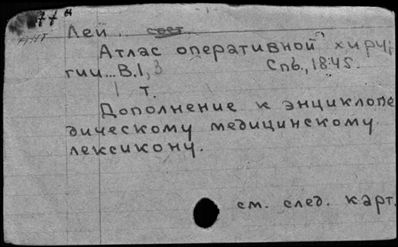 77 Лей... сост.
Атлас оперативной хирур
гии... В.1,3 Спб., 1845.
1 т.
Дополнение к энциклопе
дическому медицинскому
лексикону.
см. след. карт.